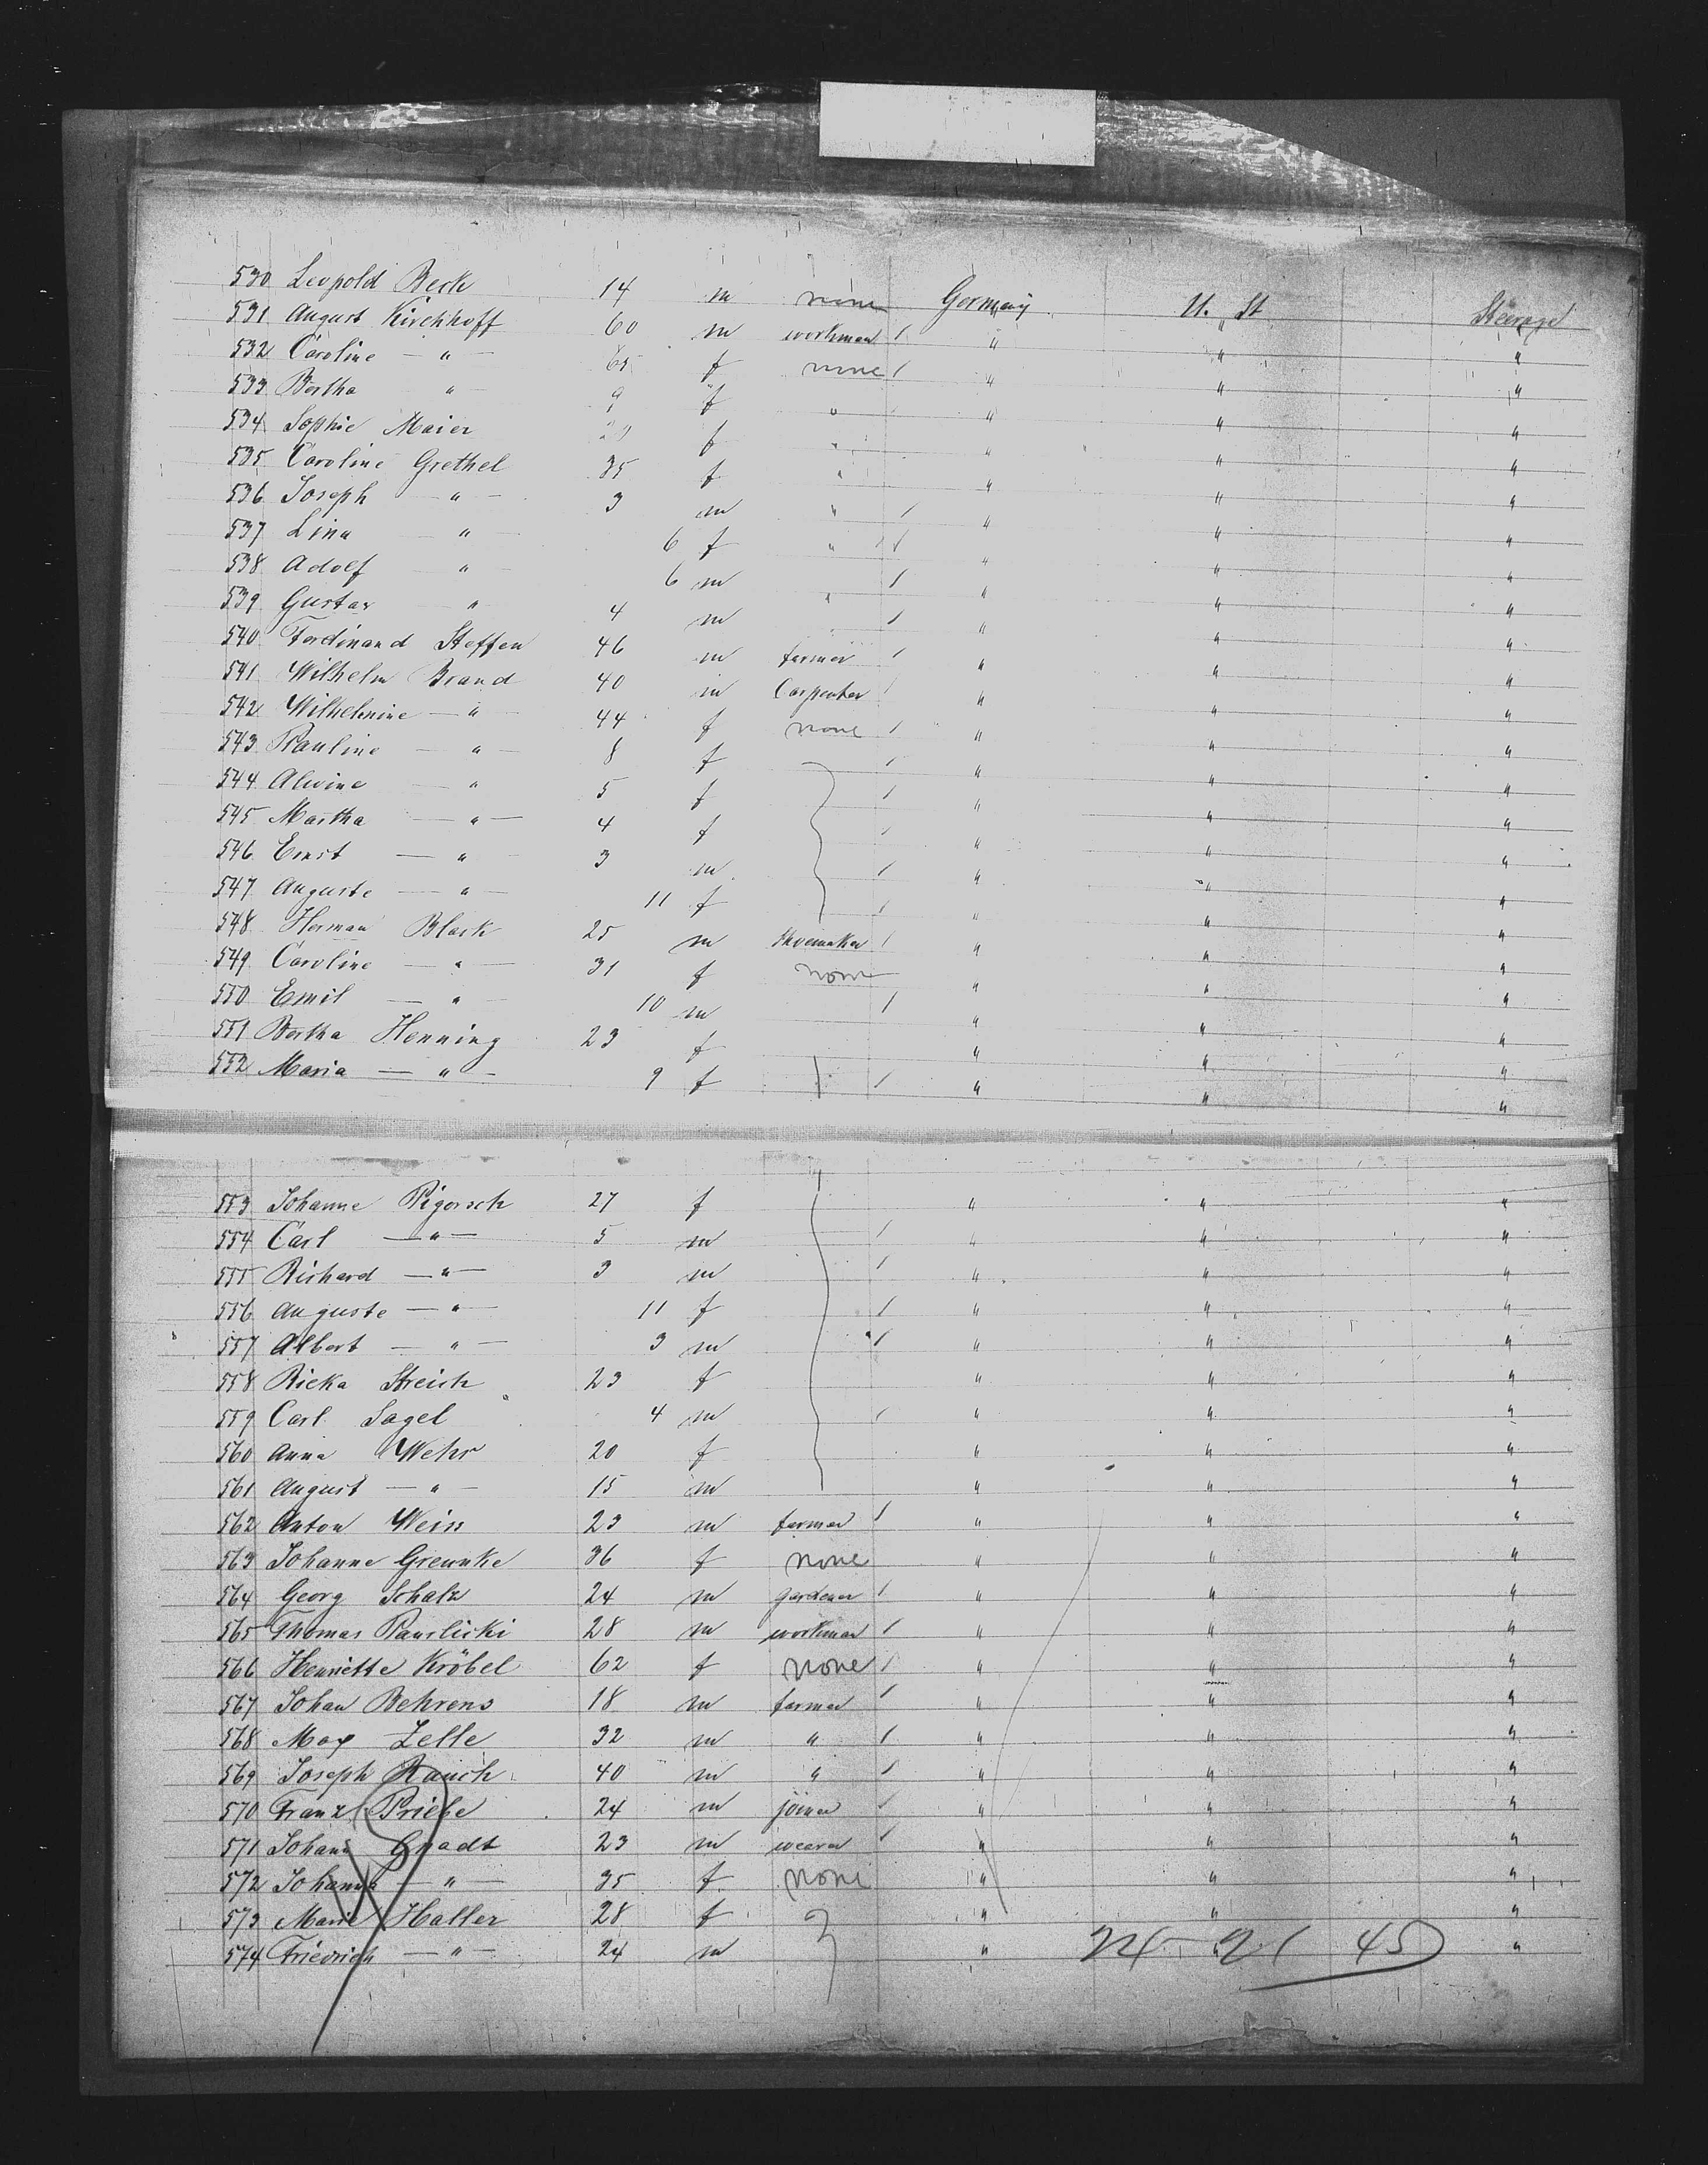 530 Leopold Berk 14 m none Germany U. St Steerage
531 August Kirchhoff 60 m workman " " "
532 Caroline — " — 65 f none " " "
533 Bertha " — 9 f " " " "
534 Sophie Maier f " " " "
535 Caroline Grethel 35 f " " " "
536 Joseph — " — 3 m " " " "
537 Lina — " — 6 f " " " "
538 Adolf " — 6 m " " "
539 Gustav — " 4 m " " " "
540 Ferdinand Steffen 46 m farmer " " "
541 Wilhelm Brand 40 m Carpenter " " "
542 Wilhelmine — " — 44 f none " " "
543 Pauline — " — 8 f " " "
544 Alwine — " 5 f " " "
545 Martha — " — 4 f " " "
546 Ernst — " — 3 m " " "
547 Auguste — " — 11 f " " "
548 Herman Black 25 m Shoemaker " " "
549 Caroline — " — 31 f none " " "
550 Emil — " — 10 m " " "
551 Bertha Henning 23 f " " "
552 Maria — " — 9 f " " "
553 Johanne Pigorsch 27 f " " "
554 Carl — " — 5 m " " "
555 Richard — " — 3 m " " "
556 Auguste — " — 11 f " " "
557 Albert — " — 3 m " " "
558 Rieka Streich 23 f " " "
559 Carl Sagel 4 m " " "
560 Anna Wehr 20 f " " "
561 August — " — 15 m " " "
562 Anton Weiss 23 m farmer " " "
563 Johanne Greunke 36 f none " " "
564 Georg Schalz 24 m gardener " " "
565 Thomas Pawlicki 28 m workman " " "
566 Henriette Kröbel 62 f none " " "
567 Johan Behrens 18 m farmer " " "
568 Max Zelle 32 m " " " "
569 Joseph Rauch 40 m " " " "
570 Franz Priebe 24 m joiner " " "
571 Johann Gnadt 23 m weaver " " "
572 Johanna — " — 35 f none " " "
573 Marie Haller 28 f " " "
574 Friedrich — " — 24 m " 24 21 45 "